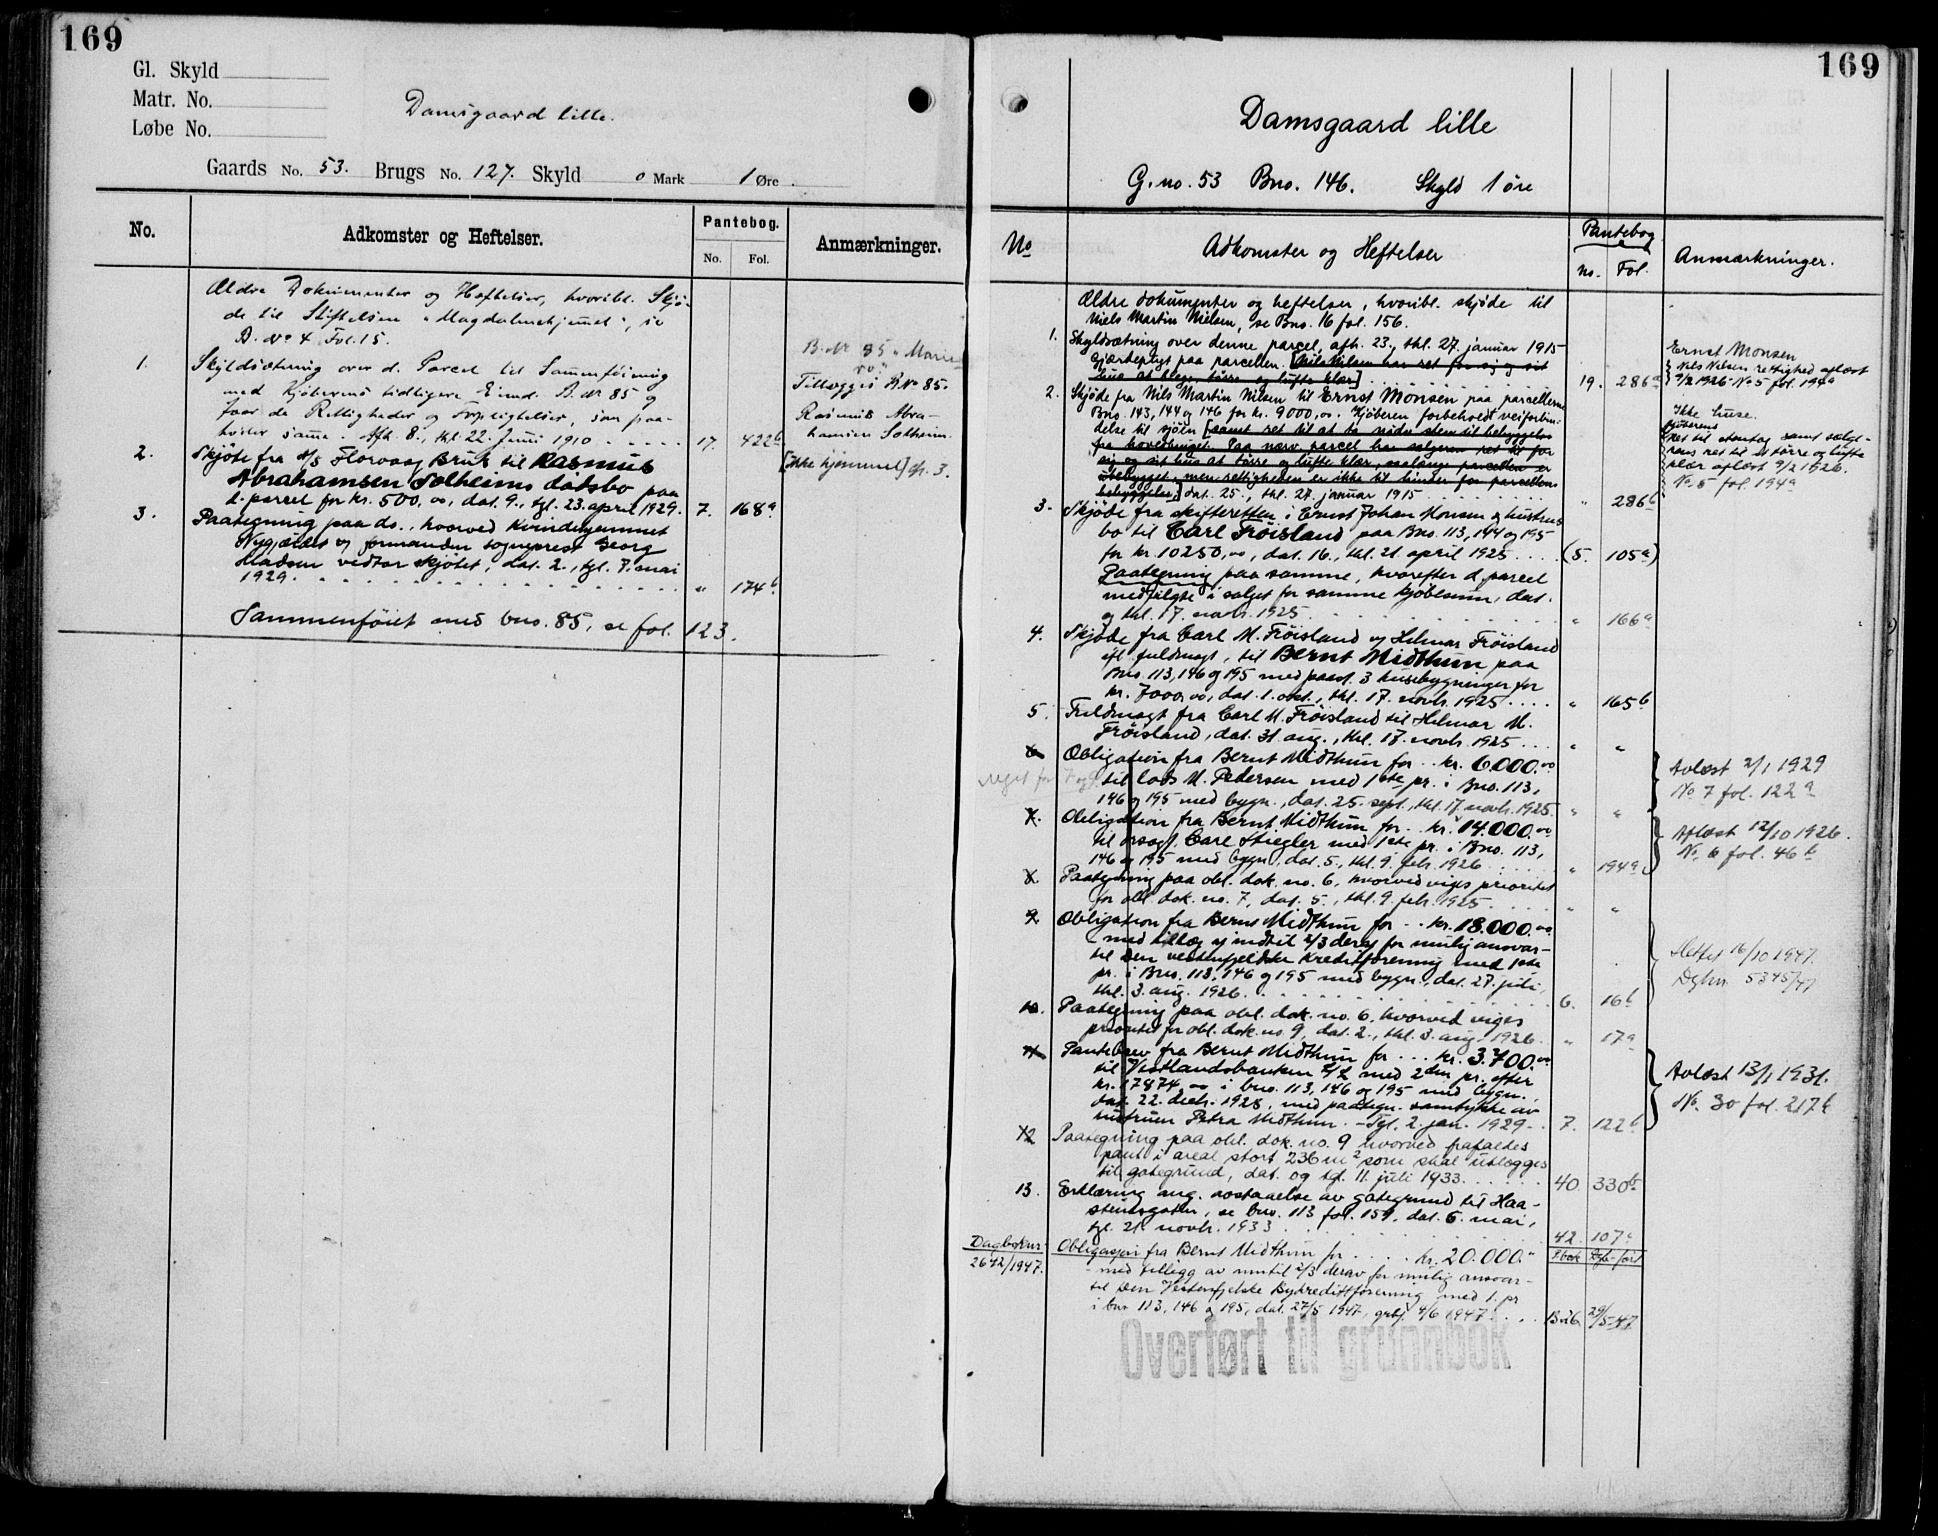 169
Gl. Skyld
Matr. No.
Løbe No.
Damsgaard lille.
Gaards No. 53. Brugs No. 127. Skyld 0 Mark 1 Øre.
No. Adkomster og Heftelser. Pantebog. No. Fol. Anmærkninger.
Ældre Dokumenter og Heftelser, hvoribl. Skjø-
de til Stiftelsen "Magdalenehjemmet", se
B. No 4 Fol. 15.
1. Skyldsætning over d. Parcel til Sammenføining
med Kjøberens tidligere Eiend. B. No 85 og
faar de Rettigheder og Forpligtelser, som paa-
hviler samme. Afh. 8., thl. 22. Juni 1910 17. 422b
2. Skjøte fra A/S Florvaag Bruk til Rasmus
Abrahamsen Solheims dødsbo paa
d. parcel for kr. 500,00, dat. 9., tgl. 23. april 1929. 7. 168a
3. Paategning paa do., hvorved Kvindehjemmet
Nygaard v/ formanden sogneprest Georg
Madsen vedtar skjøtet, dat. 2., tgl. 7. mai
1929. " 174b
Sammenføiet med bno. 85, se fol. 123.
B. No 85 "Marie
ro"
Tillægges B No 85.
Rasmus Abra-
hamsen Solheim.
[Ikke hjemmel] cfr. 3.
169
Damsgaard lille
G. no. 53 Bno. 146. Skyld 1 øre
No Adkomster og Heftelser Pantebog no. Fol. Anmærkninger.
Ældre dokumenter og heftelser, hvoribl. skjøde til
Niels Martin Nielsen, se Bno. 16 fol. 156.
1. Skyldsætning over denne parcel, afh. 23., thl. 27. januar 1915
Gjærdepligt paa parcellen. [Nils Nilsen har ret for sig og sit
hus at blege, tørre og lufte klær] 19. 286a
2. Skjøde fra Nils Martin Nilsen til Ernst Monsen paa parcellerne
Bno. 143, 144 og 146 for kr. 9000,00. Kjøberen forbeholdt veiforbin-
delse til sjøen [samt ret til at ta sten til bebyggelse
fra hovedbruget. Paa nærv. parcel har sælgeren ret til for
sig og sit hus at tørre og lufte klær, saalænge parcellen er
ubebygget, men rettigheden er ikke til hinder for parcellens
bebyggelse.] dat. 25., thl. 27. januar 1915 " 286b
3. Skjøde fra skifteretten i Ernst Johan Monsen og hustrus
bo til Carl Frøisland paa Bno. 113, 144 og 195
for kr. 10250,00, dat. 16., thl. 21 april 1925 (5. 105a)
Paategning paa samme, hvorefter d. parcel
medfulgte i salget for samme kjøbesum, dat.
og thl. 17. novbr. 1925 " 166a
4. Skjøde fra Carl M. Frøisland v/ Helmar Frøisland
ifl. fuldmagt, til Bernt Midthun paa
Bno. 113, 146 og 195 med paast. 3 husebygninger for
kr. 7000,00, dat. 1. okt., thl. 17. novbr. 1925 " 165b
5. Fuldmagt fra Carl M. Frøisland til Helmar M.
Frøisland, dat. 31. aug., thl. 17. novbr. 1925 " "
6. Obligation fra Bernt Midthun for kr. 6.000.00
til Lars M. Pedersen med 1ste pr. i Bno. 113,
146 og 195 med bygn., dat. 25. sept., thl. 17. novbr. 1925 " "
7. Obligation fra Bernt Midthun for kr. 14.000.00
til orsagf. Carl Stiegler med 1ste pr. i Bno. 113,
146 og 195 med bygn., dat. 5., thl. 9. febr. 1926 " 194a
8. Paategning paa obl. dok. no. 6, hvorved viges prioritet
for obl. dok. no. 7, dat. 5., thl. 9. febr. 1925 " "
9. Obligation fra Bernt Midthun for kr. 18.000.00
med tillæg av indtil 2/3 derav for mulig ansvar-
til Den vestenfjeldske Kreditforening med 1ste
pr. i Bno. 113, 146 og 195 med bygn., dat. 27. juli,
thl. 3. aug. 1926 6. 16b
10. Paategning paa obl. dok. no. 6, hvorved viges
prioritet for obl. dok. no. 9, dat. 2., thl. 3. aug. 1926. " 17a
11. Pantebrev fra Bernt Midthun for kr. 3.700.00
til Vestlandsbanken A/L med 2den pr. efter
kr. 17874,00 i bno. 113, 146 og 195 med bygn.
dat. 22. decbr. 1928, med paategn. samtykke av
hustruen Petra Midthun. - Tgl. 2. jan. 1929 7. 122b
12 Paategning paa obl. dok. no. 9 hvorved frafaldes
pant i areal stort 236 m2 som skal utlægges
til gategrund, dat. og tgl. 11. juli 1933 40. 330b
13. Erklæring ang. avstaaelse av gategrund til Haa-
steinsgaten, se bno. 113 fol. 159, dat. 6. mai,
tgl. 21 novbr. 1933 42. 107a
Dagboknr. 2642/1947. Obligasjon fra Bernt Midthun for kr. 20.000.- P.bok Dgb.-ført
- med tillegg av inntil 2/3 derav for mulig ansvar -
til Den Vestenfjelske Bykredittforening med 1. pr
i bno 113, 146 og 195, dat. 27/5 1947, grbf. 4/6 1947. B v6 29/5-47
Overført til grunnbok
Ernst Monsen
Nils Nilsen rettighed aflæst
9/2 1926 No 5 fol. 194a
Ikke huse.
Kjøberens
ret til stentag samt sælge-
rens ret til at tørre og lufte
klær aflæst 9/2 1926.
No 5 fol. 194a
Avlæst 2/1 1929
No 7 fol. 122a
Aflæst 12/10 1926.
No. 6 fol. 46b
Slettet 16/10 1947.
Dgbnr. 5345/47
Avlæst 13/1 1931.
No. 30 fol. 217b